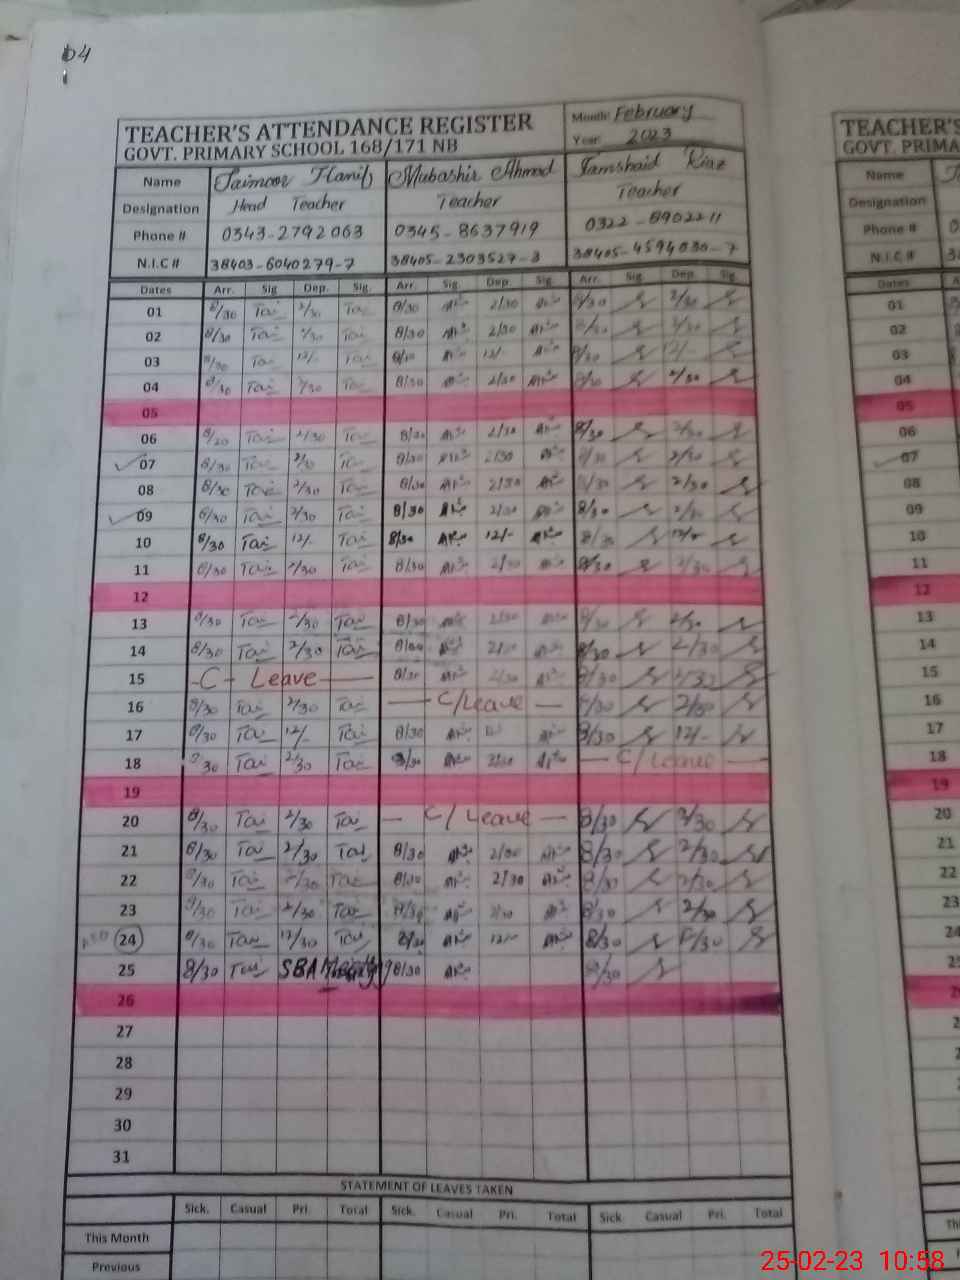 04
TEACHER'S ATTENDANCE REGISTER
GOVT. PRIMARY SCHOOL 168/171 NB
Month: February
Year: 2023
Name Taimoor Hanif Mubashir Ahmad Jamshaid Riaz
Designation Head Teacher Teacher Teacher
Phone # 0343-2792063 0345-8637919 0322-8902211
N.I.C # 38403-6040279-7 38405-2303527-3 38405-4594030-7
Dates Arr. Sig Dep. Sig. Arr. Sig. Dep. Sig. Arr. Sig Dep. Sig.
01 8/30 Tai 2/30 Tai 8/30 2/30 8/30 2/30
02 8/30 Tai 2/30 Tai 8/30 2/30 8/30 2/30
03 8/30 Tai 12/- Tai 8/30 12/- 8/30 12/-
04 8/30 Tai 2/30 Tai 8/30 2/30 8/30 2/30
05
06 8/30 Tai 2/30 Tai 8/30 2/30 8/30 2/30
07 8/30 Tai 2/30 Tai 8/30 2/30 8/30 2/30
08 8/30 Tai 2/30 Tai 8/30 2/30 8/30 2/30
09 8/30 Tai 2/30 Tai 8/30 2/30 8/30 2/30
10 8/30 Tai 12/- Tai 8/30 12/- 8/30 12/-
11 8/30 Tai 2/30 Tai 8/30 2/30 8/30 2/30
12
13 8/30 Tai 2/30 Tai 8/30 2/30 8/30 2/30
14 8/30 Tai 2/30 Tai 8/30 2/30 8/30 2/30
15 C - Leave 8/30 2/30 8/30 2/30
16 8/30 Tai 2/30 Tai C/Leave 8/30 2/30
17 8/30 Tai 12/- Tai 8/30 8/30 12/-
18 8/30 Tai 2/30 Tai 8/30 2/30 C/Leave
19
20 8/30 Tai 2/30 Tai C/Leave 8/30 2/30
21 8/30 Tai 2/30 Tai 8/30 2/30 8/30 2/30
22 8/30 Tai 2/30 Tai 8/30 2/30 8/30 2/30
23 8/30 Tai 2/30 Tai 8/30 2/30 8/30 2/30
24 8/30 Tai 12/30 Tai 8/30 12/- 8/30
25 8/30 Tai SBA 8/30 8/30
26
27
28
29
30
31
STATEMENT OF LEAVES TAKEN
Sick. Casual Pri. Total Sick. Casual Pri. Total Sick. Casual Pri. Total
This Month
Previous
TEACHER'S
GOVT. PRIMA
Name
Designation
Phone #
N.I.C #
Dates
01
02
03
04
05
06
07
08
09
10
11
12
13
14
15
16
17
18
19
20
21
22
23
24
25-02-23 10:58